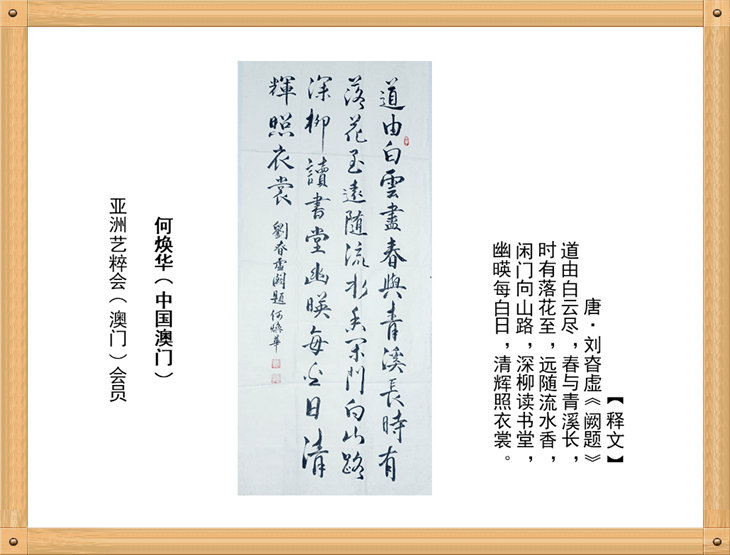 【释文】
唐·刘昚虚《阙题》
道由白云尽，春与青溪长，
时有落花至，远随流水香，
闲门向山路，深柳读书堂，
幽暎每白日，清辉照衣裳。
道由白雲盡春與青溪長時有
落花至遠随流水香閑門向山路
深柳讀書堂幽暎每白日清
輝照衣裳
劉昚虛闕題 何煥華
何焕华（中国澳门）
亚洲艺粹会（澳门）会员